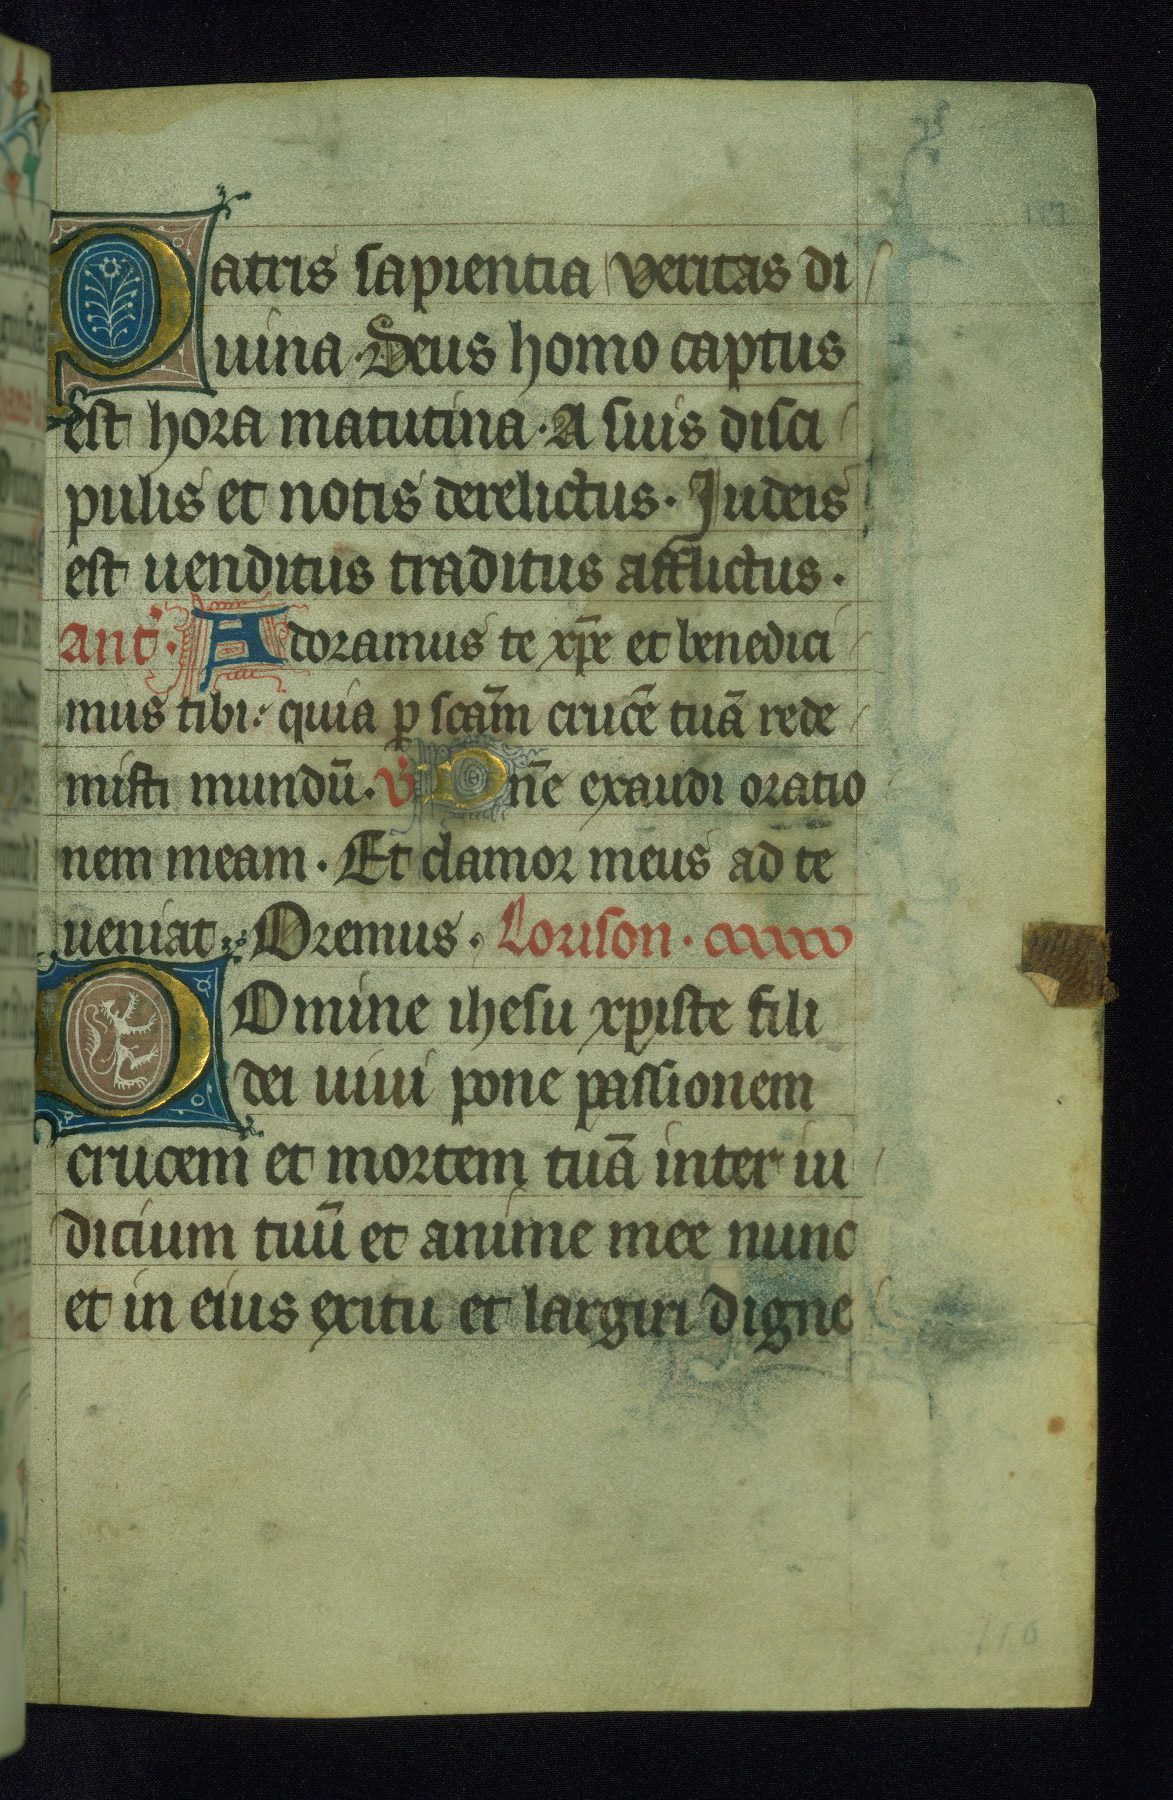 Patris sapientia veritas di
uina. Deus homo captus
est hora matutina. A suis disci
pulis et notis derelictus. Judeis
est uenditus traditus afflictus.
Ant̃. Adoramus te xp̄e et benedici
mus tibi: quia ꝑ scām crucē tuā rede
misti mundū. ℣ Dn̄e exaudi oratio
nem meam. Et clamor meus ad te
ueniat. Oremus. Lorison.
DOmine ihesu xpiste fili
dei uiui pone passionem
crucem et mortem tuā inter iu
dicium tuū et anime mee nunc
et in eius exitu et largiri digne
116